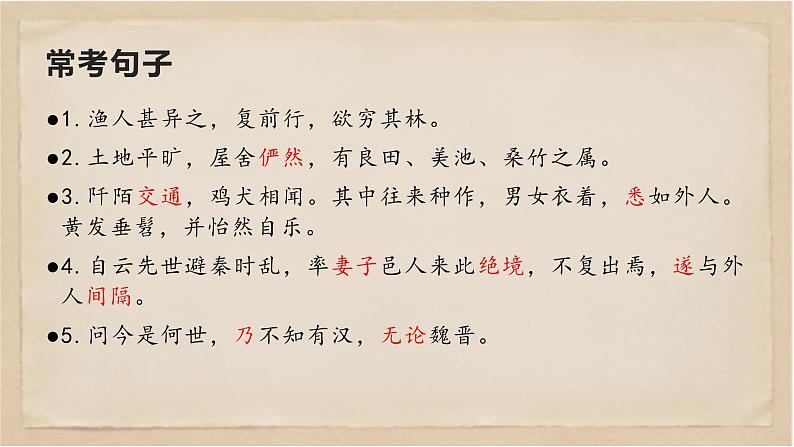 常考句子
●1.渔人甚异之，复前行，欲穷其林。
●2.土地平旷，屋舍俨然，有良田、美池、桑竹之属。
●3.阡陌交通，鸡犬相闻。其中往来种作，男女衣着，悉如外人。
黄发垂髫，并怡然自乐。
●4.自云先世避秦时乱，率妻子邑人来此绝境，不复出焉，遂与外
人间隔。
●5.问今是何世，乃不知有汉，无论魏晋。